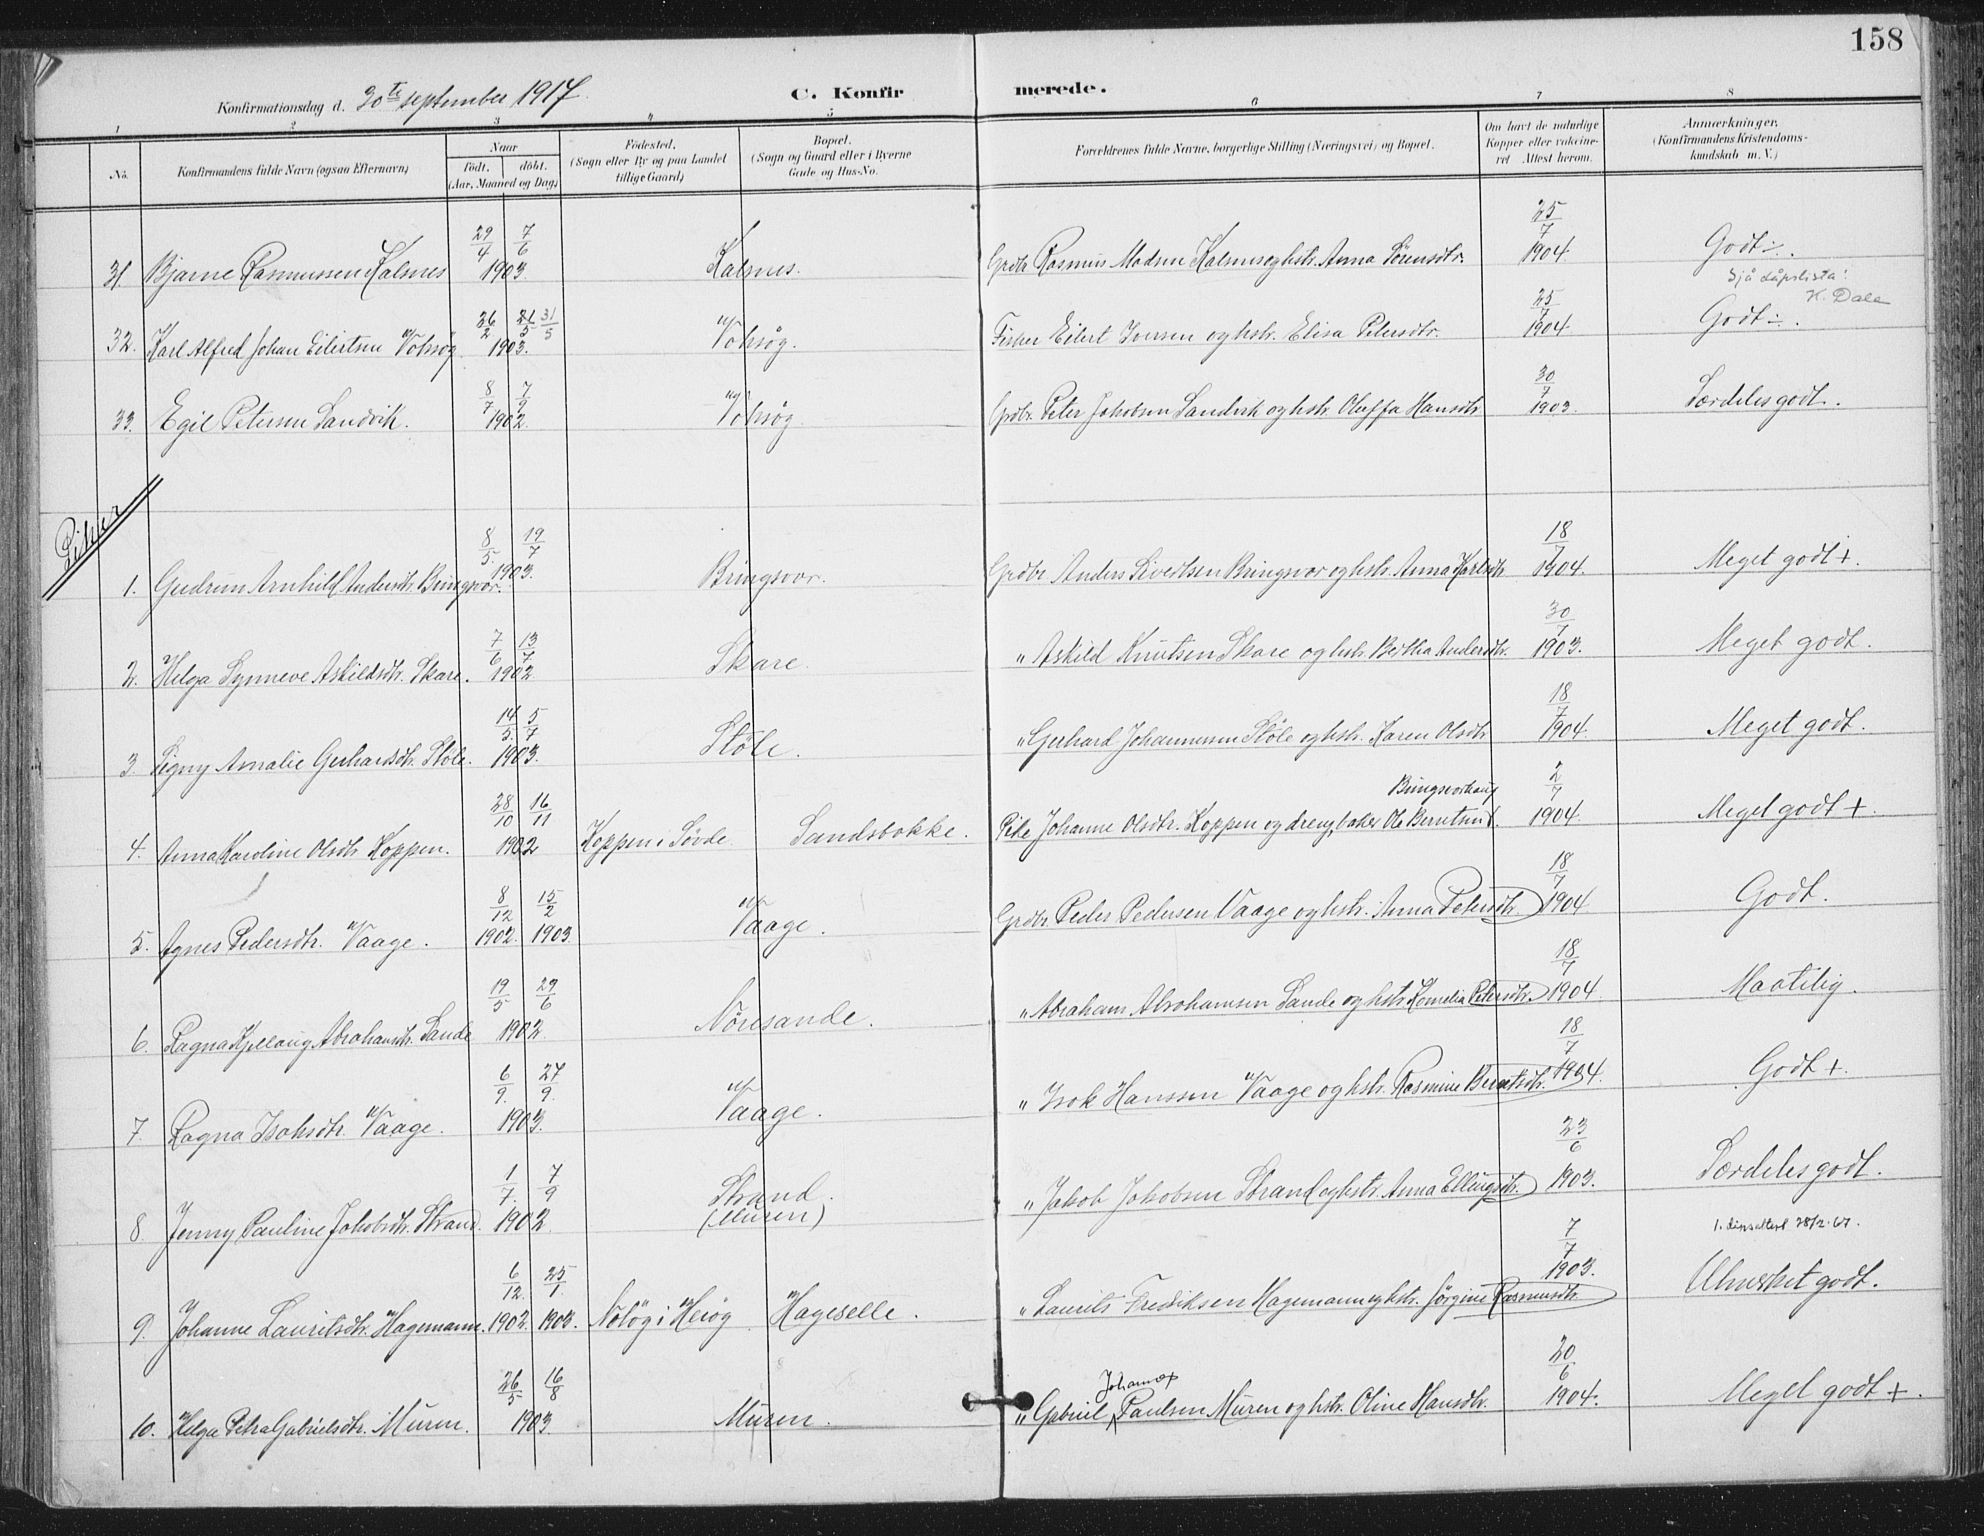 158
Konfirmationsdag d. 30te september 1917.
C. Konfirmerede.
1 2 3 4 5 6 7 8
No. Konfirmandens fulde Navn (ogsaa Efternavn) Naar født. døbt. (Aar, Maaned og Dag) Fødested. (Sogn eller By og paa Landet tillige Gaard) Bopæl. (Sogn og Gaard eller i Byerne Gade og Hus-No. Forældrenes fulde Navne, borgerlige Stilling (Næringsvei) og Bopæl. Om havt de naturlige Kopper eller vaccineret. Attest herom. Anmærkninger. (Konfirmandens Kristendomskundskab m. V.)
31. Bjarne Rasmussen Kalsnes 29/4 7/6 1903. Kalsnes. Grdbr Rasmus Madsen Kalsnes og hstr. Anna Sørensdtr. 25/7 1904. Godt ÷.
Sjå dåpslista! K. Dale
32. Karl Alfred Johan Eilertsen Voksøy 26/2 31/5 1903. Voksøy. Fisker Eilert Iversen og hstr. Elisa Petersdtr. 25/7 1904. Godt ÷.
33. Egil Petersen Sandvik. 8/7 7/9 1902. Voksøy. Grdbr. Peter Jakobsen Sandvik og hstr. Oluffa Hansdtr. 30/7 1903. Særdeles godt.
Piker
1. Gudrun Arnhild Andersdtr. Bringsvor. 8/5. 19/7 1903. Bringsvor. Grdbr Anders Sivertsen Bringsvor og hstr. Anna Karlsdtr 18/7 1904. Meget godt +.
2. Helga Synneve Askildsdtr. Skare. 7/6 13/7 1902. Skare. " Askild Knutsen Skare og hstr. Bertha Andersdtr. 30/7 1903. Meget godt.
3 Signy Amalie Gerhardsdtr. Støle. 14/5. 5/7 1903. Støle. " Gerhard Johannessen Støle og hstr. Karen Olsdtr 18/7 1904. Meget godt.
4. Anna Karoline Olsdtr. Koppen. 28/10 16/11 1902 Koppen i Søvde. Sandsbakke. Pike Johanne Olsdtr. Koppen og dreng, baker Ole Berntsen Bringsvorhaug. 2/7 1904. Meget godt +.
5. Agnes Pedersdtr. Vaage. 8/12 1902. 15/2 1903 Vaage. Grdbr. Peder Pedersen Vaage og hstr. Anna Petersdtr. 18/7 1904. Godt.
6. Ragna Kjellaug Abrahamsdtr. Sande 19/5 29/6 1902 Nøresande. " Abraham Abrahamsen Sande og hstr Kornelia Petersdtr. 18/7 1904 Maatelig.
7. Ragna Isaksdtr. Vaage. 6/9. 27/9. 1903. Vaage. " Isak Hanssen Vaage og hstr. Rasmine Berntsdtr. 18/7 1904. Godt +.
8 Jenny Pauline Jakobsdtr. Strand. 1/7. 7/9 1902. Strand. (Muren) " Jakob Jakobsen Strand og hstr. Anna Ellingsdtr. 23/6 1903. Særdeles godt.
28/2-67.
9. Johanne Lauritsdtr. Hagemann. 6/12. 1902. 25/1. 1903. Hageselle. " Laurits Fredriksen Hagemann og hstr. Jørgine Rasmusdtr 7/7 1903. Utmerket godt.
10. Helga Petra Gabrielsdtr. Muren. 26/5 16/8 1903. Muren. " Gabriel Johan Paulsen Muren og hstr. Oline Hansdtr. 20/6 1904. Meget godt +.